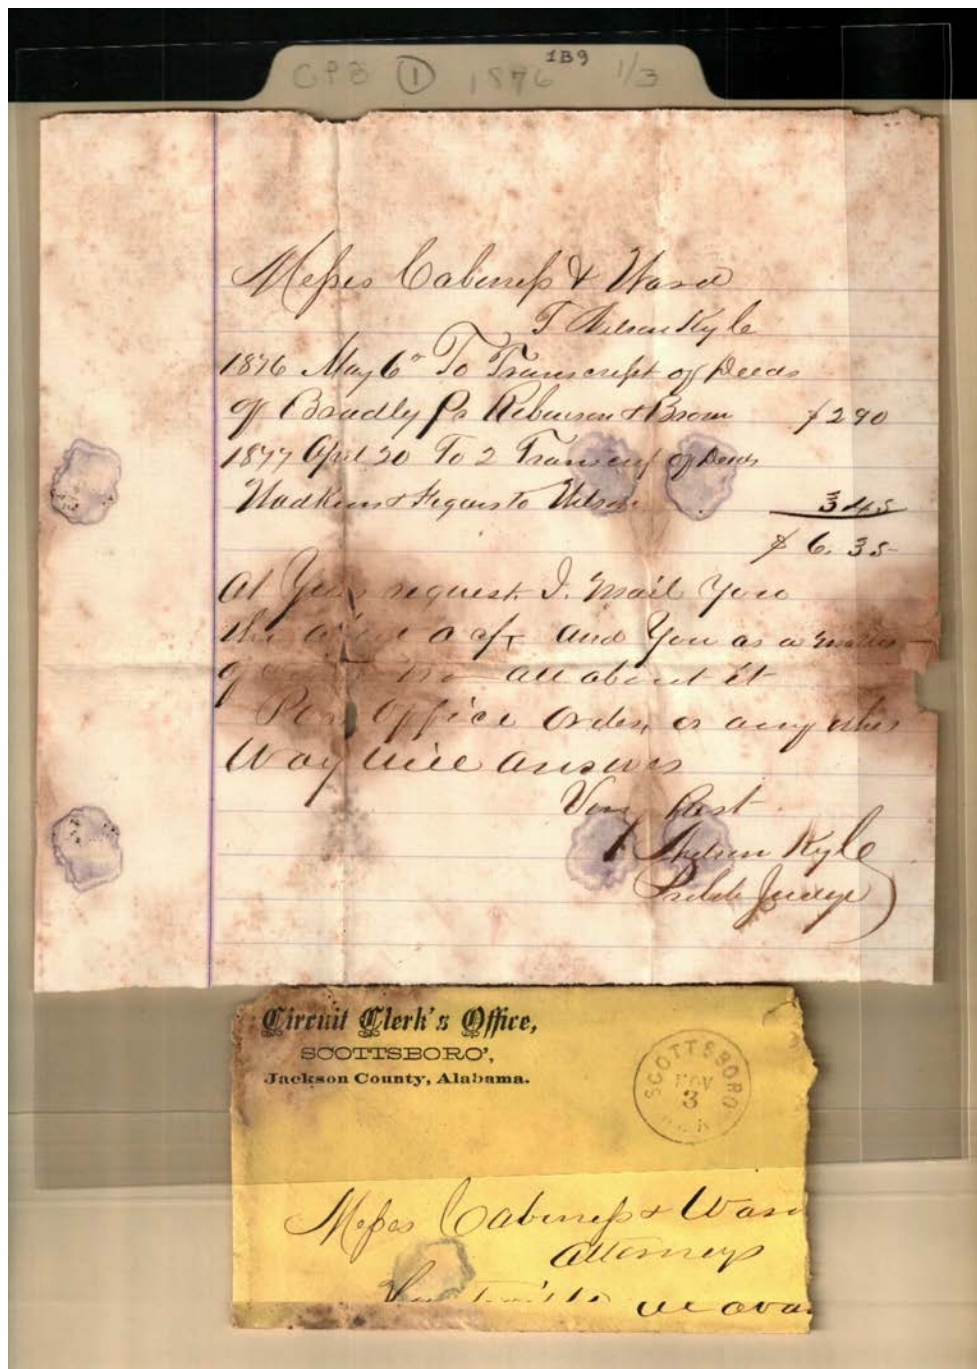 CPB ① 1876 1B9 1/3
Messrs Cabiness & Ward
Nelson Kyle
1876 May 6th To Transcript of Deeds
of Bradly Robinson & Brown $2 90
1877 April 20 To 2 Transcript of Deeds
to Wilson 3 45
$ 6.35
At Your request I mail You
the and You as a matter
of all about it
Post office order, or any other
Way will answer
Very Rest
Nelson Kyle
Probate Judge
Circuit Clerk's Office,
SCOTTSBORO',
Jackson County, Alabama.
SCOTTSBORO
NOV
3
Messrs Cabiness & Ward
Attorneys
Huntsville